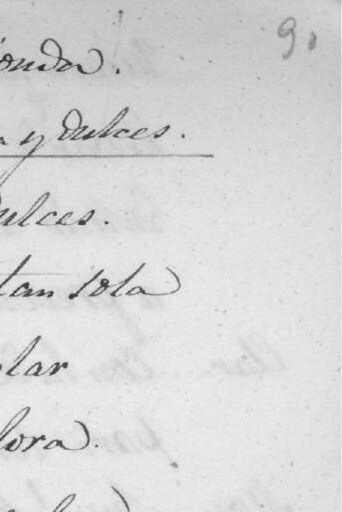 9.
onda.
a y dulces.
ulces.
tan sola
lar
lora.